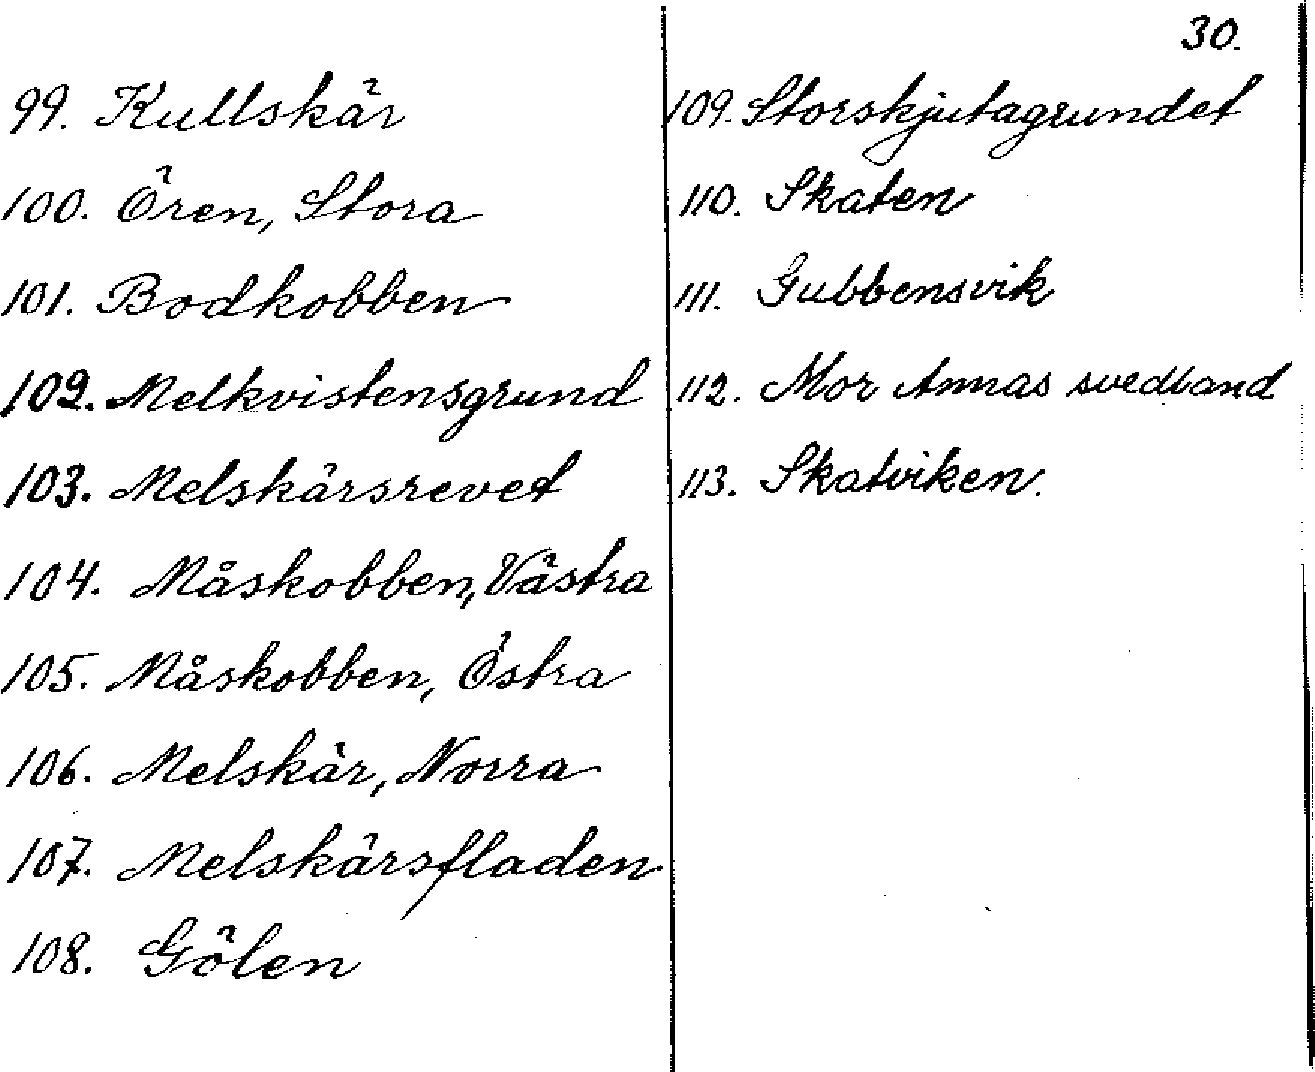 30.
99. Kullskär
100. Ören, Stora
101. Bodkobben
102. Melkvistensgrund
103. Melskärsrevet
104. Måskobben, Västra
105. Måskobben, Östra
106. Melskär, Norra
107. Melskärsfladen
108. Gölen
109. Storskjutagrundet
110. Skaten
111. Gubbensvik
112. Mor Annas svedland
113. Skatviken.